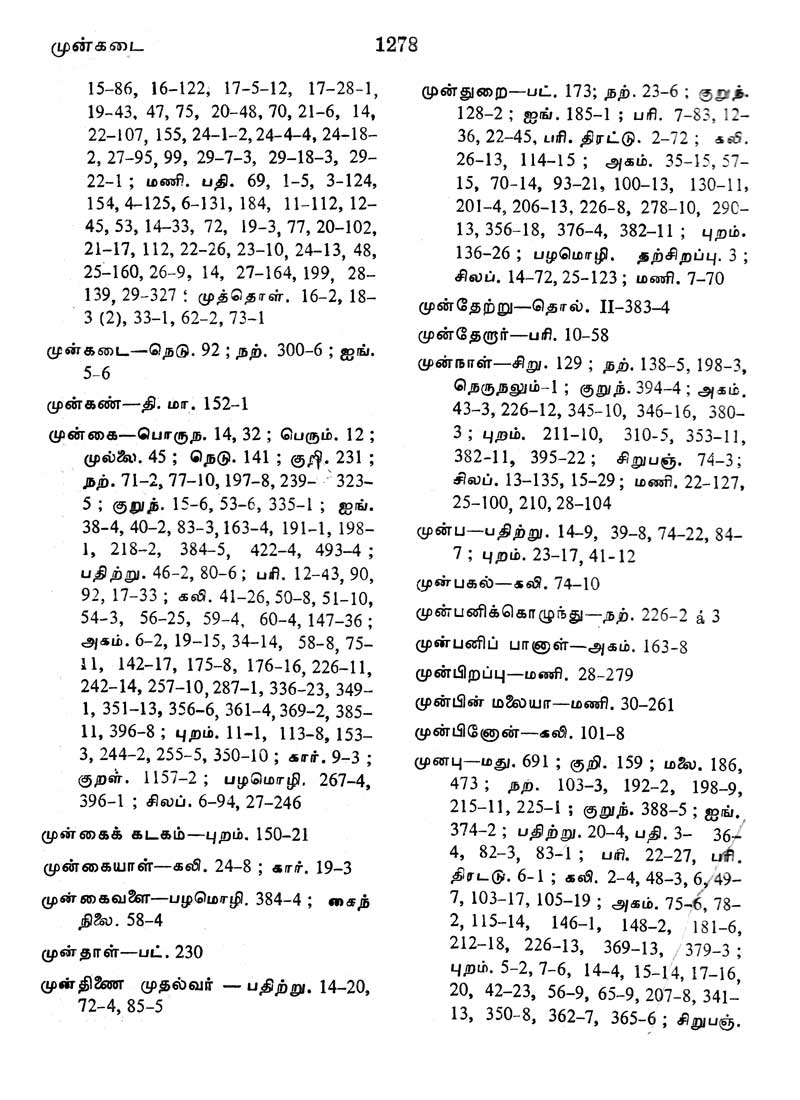 முன்கடை
1278
15–86, 16–122, 17–5–12, 17–28–1,
19–43, 47, 75, 20–48, 70, 21–6, 14,
22–107, 155, 24–1–2, 24–4–4, 24–18–
2, 27–95, 99, 29–7–3, 29–18–3, 29–
22–1 ; மணி. பதி. 69, 1–5, 3–124,
154, 4–125, 6–131, 184, 11–112, 12–
45, 53, 14–33, 72, 19–3, 77, 20–102,
21–17, 112, 22–26, 23–10, 24–13, 48,
25–160, 26–9, 14, 27–164, 199, 28–
139, 29–327 : முத்தொள். 16–2, 18–
3 (2), 33–1, 62–2, 73–1
முன்கடை—நெடு. 92 ; நற். 300–6 ; ஐங்.
5–6
முன்கண்—தி. மா. 152–1
முன்கை—பொருந. 14, 32 ; பெரும். 12 ;
முல்லை. 45 ; நெடு. 141 ; குறி. 231 ;
நற். 71–2, 77–10, 197–8, 239– 323–
5 ; குறுந். 15–6, 53–6, 335–1 ; ஐங்.
38–4, 40–2, 83–3, 163–4, 191–1, 198–
1, 218–2, 384–5, 422–4, 493–4 ;
பதிற்று. 46–2, 80–6 ; பரி. 12–43, 90,
92, 17–33 ; கலி. 41–26, 50–8, 51–10,
54–3, 56–25, 59–4, 60–4, 147–36 ;
அகம். 6–2, 19–15, 34–14, 58–8, 75–
11, 142–17, 175–8, 176–16, 226–11,
242–14, 257–10, 287–1, 336–23, 349–
1, 351–13, 356–6, 361–4, 369–2, 385–
11, 396–8 ; புறம். 11–1, 113–8, 153–
3, 244–2, 255–5, 350–10 ; கார். 9–3 ;
குறள். 1157–2 ; பழமொழி. 267–4,
396–1 ; சிலப். 6–94, 27–246
முன்கைக் கடகம்—புறம். 150–21
முன்கையாள்—கலி. 24–8 ; கார். 19–3
முன்கைவளை—பழமொழி. 384–4 ; கைந்
நிலை. 58–4
முன்தாள்—பட். 230
முன்திணை முதல்வர் — பதிற்று. 14–20,
72–4, 85–5
முன்துறை—பட். 173; நற். 23–6 ; குறுந்.
128–2 ; ஐங். 185–1 ; பரி. 7–83, 12–
36, 22–45, பரி. திரட்டு. 2–72 ; கலி.
26–13, 114–15 ; அகம். 35–15, 57–
15, 70–14, 93–21, 100–13, 130–11,
201–4, 206–13, 226–8, 278–10, 290–
13, 356–18, 376–4, 382–11 ; புறம்.
136–26 ; பழமொழி. தற்சிறப்பு. 3 ;
சிலப். 14–72, 25–123 ; மணி. 7–70
முன்தேற்று—தொல். II–383–4
முன்தேரூர்—பரி. 10–58
முன்நாள்—சிறு. 129 ; நற். 138–5, 198–3,
நெருநலும்–1 ; குறுந். 394–4 ; அகம்.
43–3, 226–12, 345–10, 346–16, 380–
3 ; புறம். 211–10, 310–5, 353–11,
382–11, 395–22 ; சிறுபஞ். 74–3;
சிலப். 13–135, 15–29 ; மணி. 22–127,
25–100, 210, 28–104
முன்ப—பதிற்று. 14–9, 39–8, 74–22, 84–
7 ; புறம். 23–17, 41-12
முன்பகல்—கலி. 74–10
முன்பனிக்கொழுந்து—நற். 226–2 3
முன்பனிப் பானாள்—அகம். 163–8
முன்பிறப்பு—மணி. 28–279
முன்பின் மலையா—மணி. 30–261
முன்பினோன்—கலி. 101–8
முனபு—மது. 691 ; குறி. 159 ; மலை. 186,
473 ; நற். 103–3, 192–2, 198–9,
215–11, 225–1 ; குறுந். 388–5 ; ஐங்.
374–2 ; பதிற்று. 20–4, பதி. 3– 36–
4, 82–3, 83–1 ; பரி. 22–27, பரி.
திரடடு. 6–1 ; கலி. 2–4, 48–3, 6, 49–
7, 103–17, 105–19 ; அகம். 75–6, 78–
2, 115–14, 146–1, 148–2, 181–6,
212–18, 226–13, 369–13, 379–3 ;
புறம். 5–2, 7–6, 14–4, 15–14, 17–16,
20, 42–23, 56–9, 65–9, 207–8, 341–
13, 350–8, 362–7, 365–6 ; சிறுபஞ்.